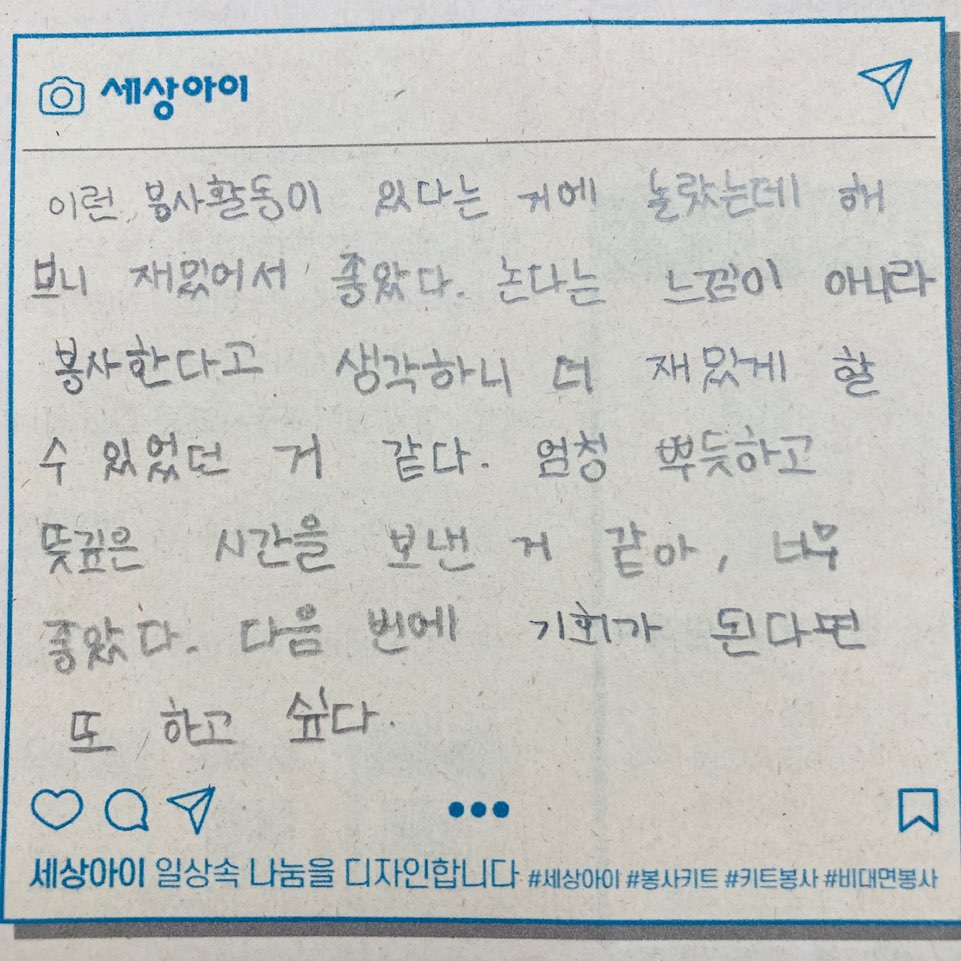 세상아이
이런 봉사활동이 있다는 거에 놀랐는데 해
보니 재밌어서 좋았다. 논다는 느낌이 아니라
봉사한다고 생각하니 더 재밌게 할
수 있었던 거 같다. 엄청 뿌듯하고
뜻깊은 시간을 보낸 거 같아, 너무
좋았다. 다음 번에 기회가 된다면
또 하고 싶다.
세상아이 일상속 나눔을 디자인합니다 #세상아이 #봉사키트 #키트봉사 #비대면봉사